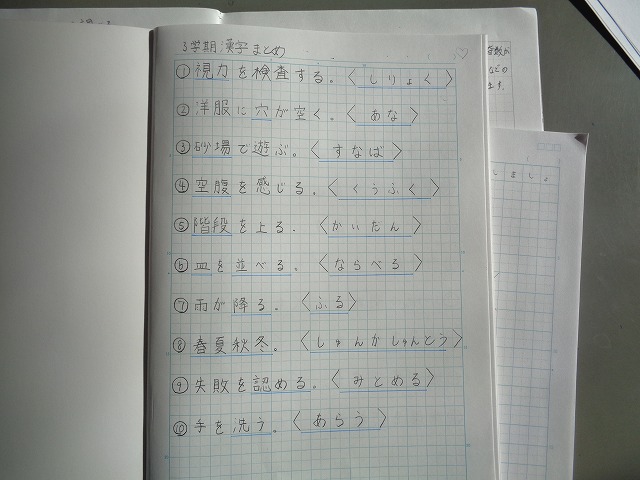 3学期漢字まとめ
①視力を検査する。〈しりょく〉
②洋服に穴が空く。〈あな〉
③砂場で遊ぶ。〈すなば〉
④空腹を感じる。〈くうふく〉
⑤階段を上る.〈かいだん〉
⑥皿を並べる。〈ならべる〉
⑦雨が降る。〈ふる〉
⑧春夏秋冬。〈しゅんかしゅんとう〉
⑨失敗を認める。〈みとめる〉
⑩手を洗う。〈あらう〉